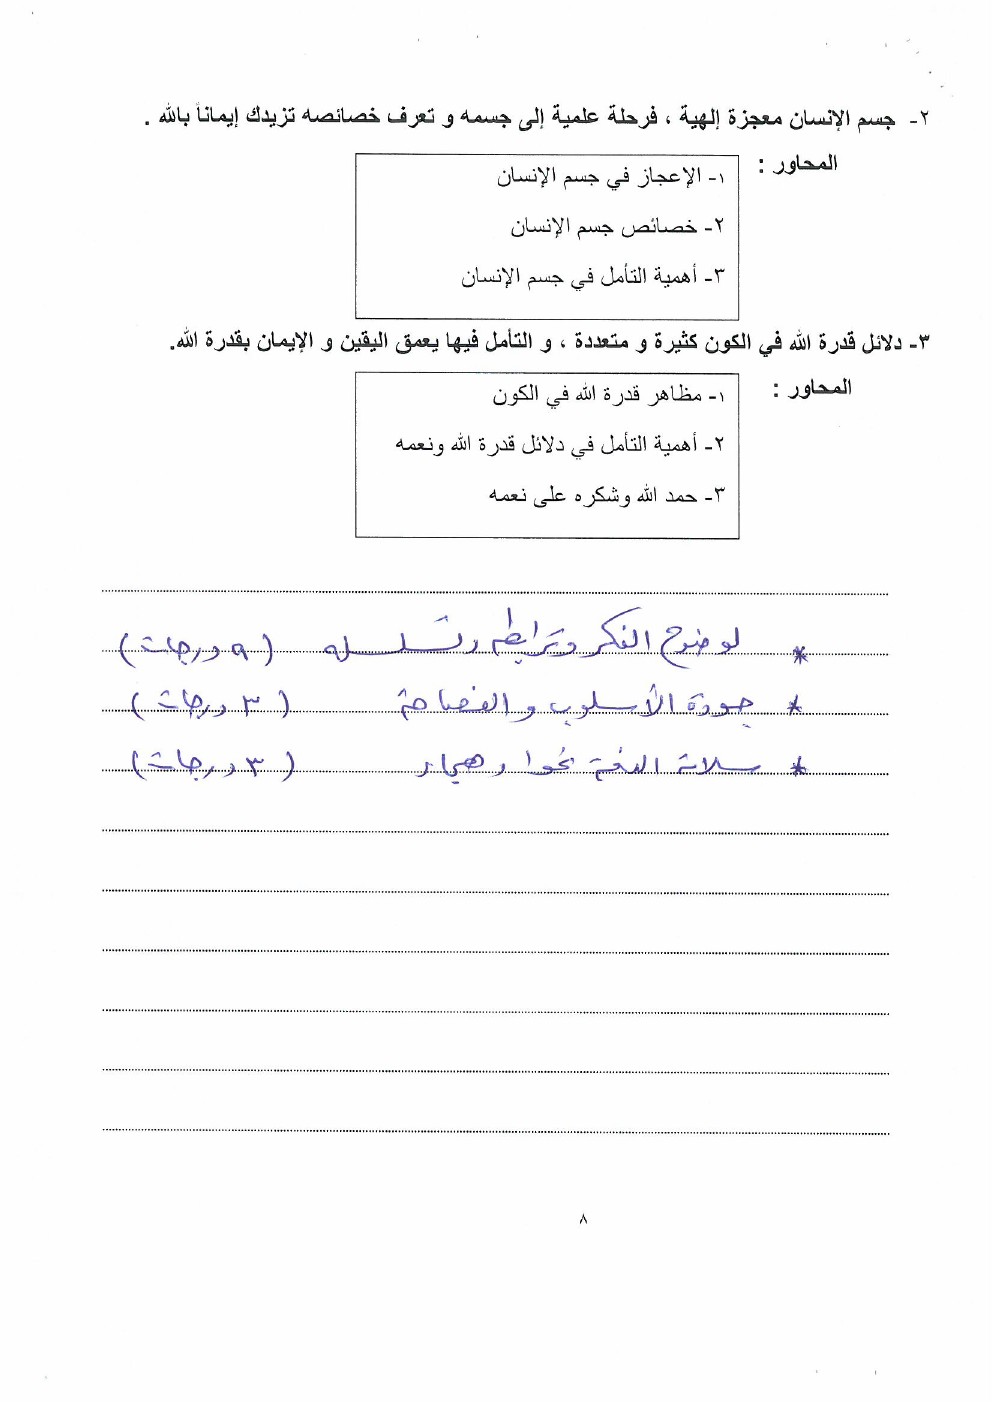 ٢- جسم الإنسان معجزة إلهية ، فرحلة علمية إلى جسمه و تعرف خصائصه تزيدك إيماناً بالله .
المحاور :
١- الإعجاز في جسم الإنسان
٢- خصائص جسم الإنسان
٣- أهمية التأمل في جسم الإنسان
٣- دلائل قدرة الله في الكون كثيرة و متعددة ، و التأمل فيها يعمق اليقين و الإيمان بقدرة الله.
المحاور :
١- مظاهر قدرة الله في الكون
٢- أهمية التأمل في دلائل قدرة الله ونعمه
٣- حمد الله وشكره على نعمه
* لوضوح الفكر وترابطه وتسلسله ( ٩ درجات )
* جودة الأسلوب والفصاحة ( ٣ درجات )
* سلامة اللغة نحوا وهجاء ( ٣ درجات )
٨